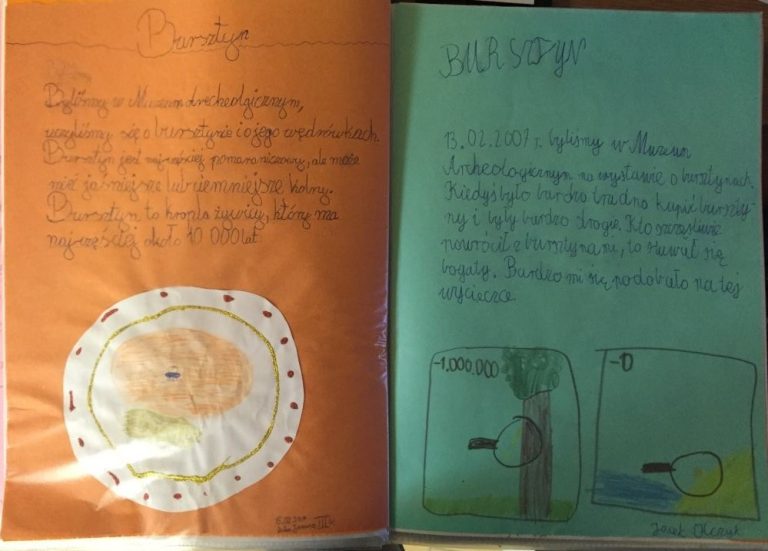 Bursztyn
Byliśmy w Muzeum Archeologicznym,
uczyliśmy się o bursztynie i o jego wędrówkach.
Bursztyn jest najczęściej pomarańczowy, ale może
mieć jaśniejsze lub ciemniejsze kolory.
Bursztyn to kropla żywicy, która ma
najczęściej około 10 000 lat
BURSZTYN
13.02.2007 r. byliśmy w Muzeum
Archeologicznym na wystawie o bursztynach.
Kiedyś było bardzo trudno kupić burszty-
ny i były bardzo drogie. Kto szczęśliwie
powrócił z bursztynami, to stawał się
bogaty. Bardzo mi się podobało na tej
wycieczce.
-1.000.000
-10
Jacek Olczyk